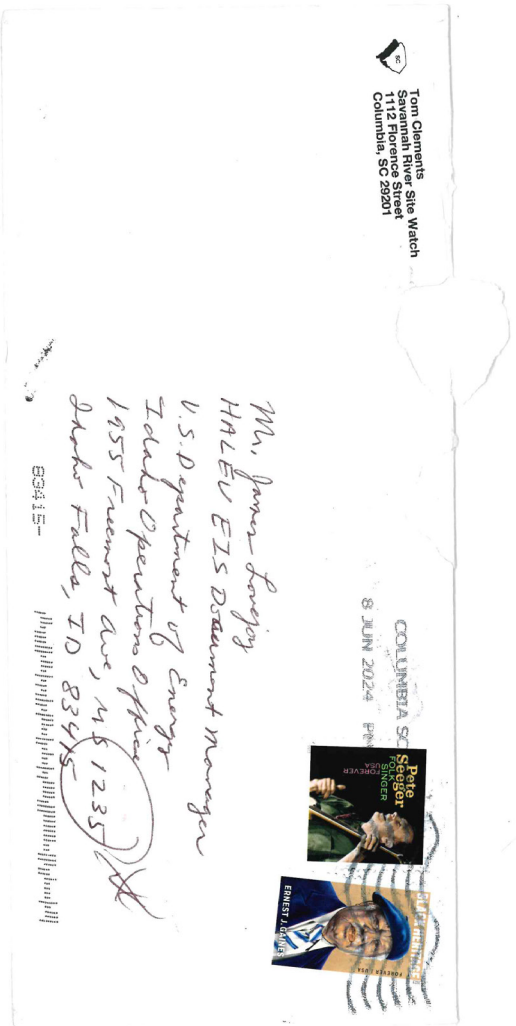 SC
Tom Clements
Savannah River Site Watch
1112 Florence Street
Columbia, SC 29201
COLUMBIA SC
8 JUN 2024 PM
Pete
Seeger
FOLK
SINGER
FOREVER
USA
BLACK HERITAGE
ERNEST J. GAINES
FOREVER / USA
Mr. James Lovejoy
HALEU EIS Document Manager
U.S. Department of Energy
Idaho Operations Office
1955 Fremont Ave, MS 1235
Idaho Falls, ID 83415
83415-